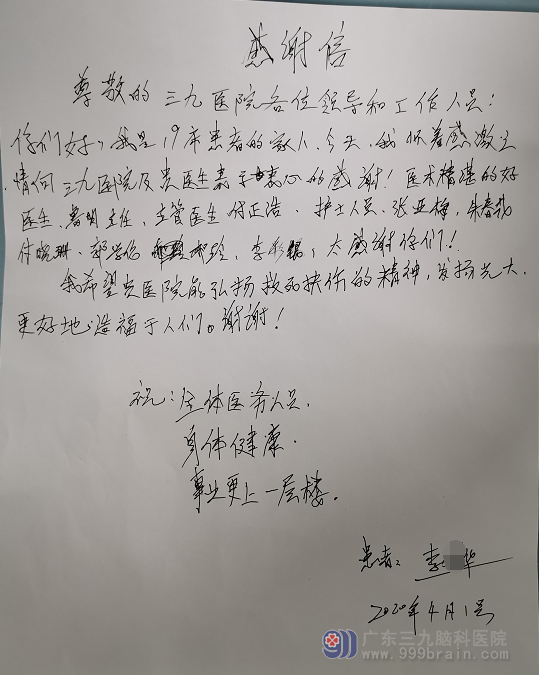 感谢信
尊敬的三九医院各位领导和工作人员:
你们好,我是19床患者的家人,今天,我怀着感激之
情向三九医院及贵医生表示衷心的感谢!医术精湛的好
医生 主任,主管医生付正浩、护士人员、张亚梅,朱
付晓 郭 李彩 太感谢你们!
我希望贵医院能弘扬救死扶伤的精神,发扬光大,
更好地造福于人们。谢谢!
祝:全体医务人员,
身体健康.
事业更上一层楼。
患者: 李 华
2020年4月1号
广东三九脑科医院
www.999brain.com